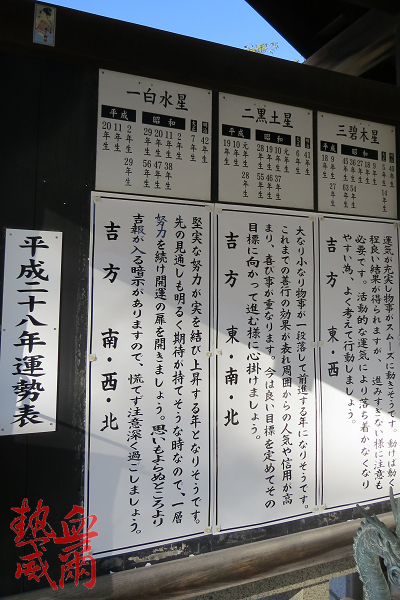 平成二十八年運勢表
一白水星
平成
昭和
20年生
11年生
2年生
29年生
20年生
11年生
2年生
56年生
47年生
38年生
29年生
42年生
堅実な努力が実を結び上昇する年となりそうです。
先の見通しも明るく期待が持てそうな時なので、一層
努力を続け開運の扉を開きましょう。思いもよらぬところより
吉報が入る暗示がありますので、慌てず注意深く過ごしましょう。
吉方 南・西・北
二黒土星
平成
昭和
19年生
10年生
元年生
28年生
28年生
19年生
10年生
55年生
46年生
37年生
大なり小なり物事が一段落して前進する年になりそうです。
これまでの善行の効果が表れ周囲からの人気や信用が高
まり、喜び事が重なります。今は良い目標を定めてその
目標に向かって進む様に心掛けましょう。
吉方 東・南・北
三碧木星
平成
昭和
18年生
9年生
27年生
45年生
36年生
27年生
18年生
63年生
54年生
運気が充実し物事がスムーズに動きそうです。動けば動く
程良い結果が得られますが、進みすぎない様に注意も
必要です。活動的な運気により落ち着かなくなり
やすい為、よく考えて行動しましょう。
吉方 西
血爾
熱威